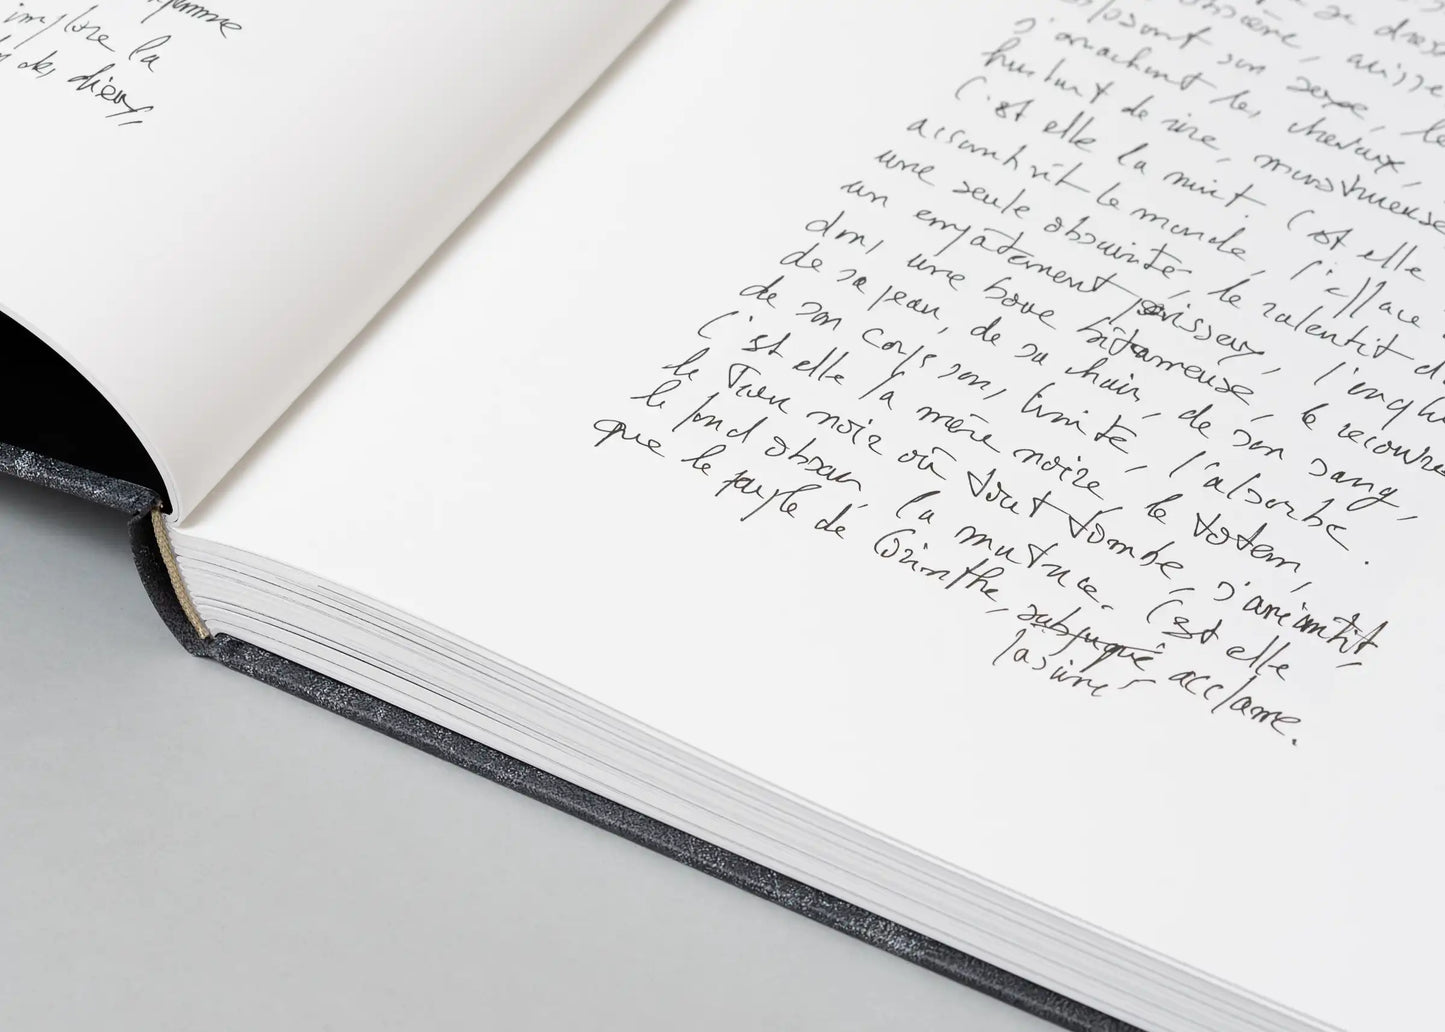 femme
implore la
des dieux,
se dresse
obscène,
exposant son sexe, le
s'arrachant les cheveux,
hurlant de rire, monstrueuse
C'est elle la nuit. C'est elle
assombrit le monde, l'efface
une seule obscurité, le ralentit d
un empâtement poisseux, l'englu
dans une boue bitumeuse, le recouvre
de sa peau, de sa chair, de son sang,
de son corps sans limite, l'absorbe.
C'est elle la mère noire, le totem,
le Trou noir où tout tombe, s'anéantit,
le fond obscur, la matrice. C'est elle
que le peuple de Corinthe, subjugué acclame.
lascive